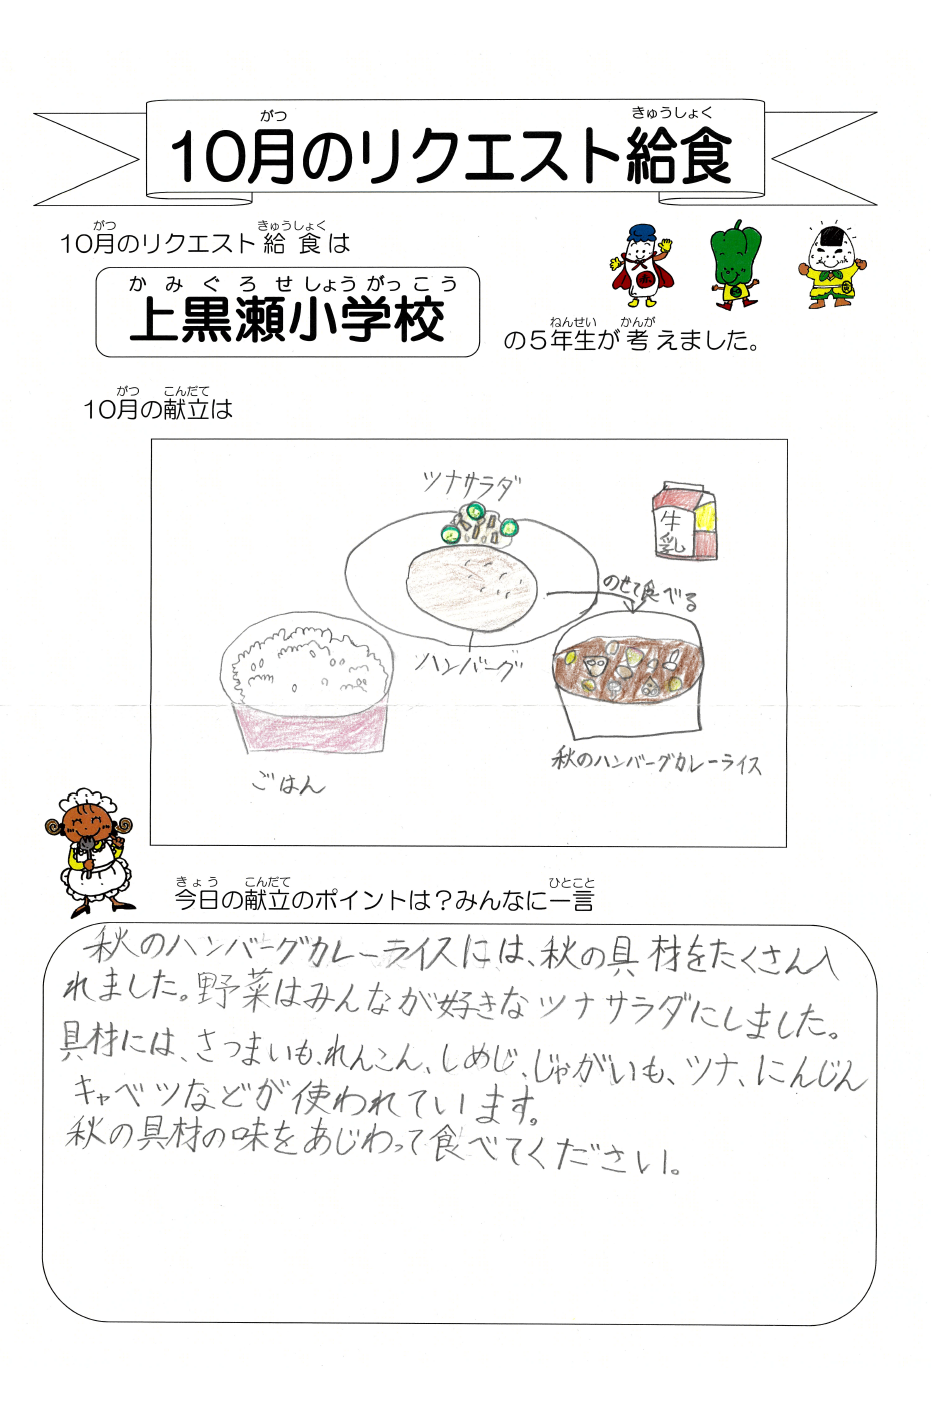 がつ きゅうしょく
10月のリクエスト給食
がつ きゅうしょく
10月のリクエスト給食は
かみぐろせしょうがっこう
上黒瀬小学校
ねんせい かんが
の5年生が考えました。
がつ こんだて
10月の献立は
ツナサラダ
牛乳
のせて食べる
ハンバーグ
秋のハンバーグカレーライス
ごはん
きょう こんだて ひとこと
今日の献立のポイントは?みんなに一言
秋のハンバーグカレーライスには、秋の具材をたくさん入
れました。野菜はみんなが好きなツナサラダにしました。
具材には、さつまいも、れんこん、しめじ、じゃがいも、ツナ、にんじん
キャベツなどが使われています。
秋の具材の味をあじわって食べてください。